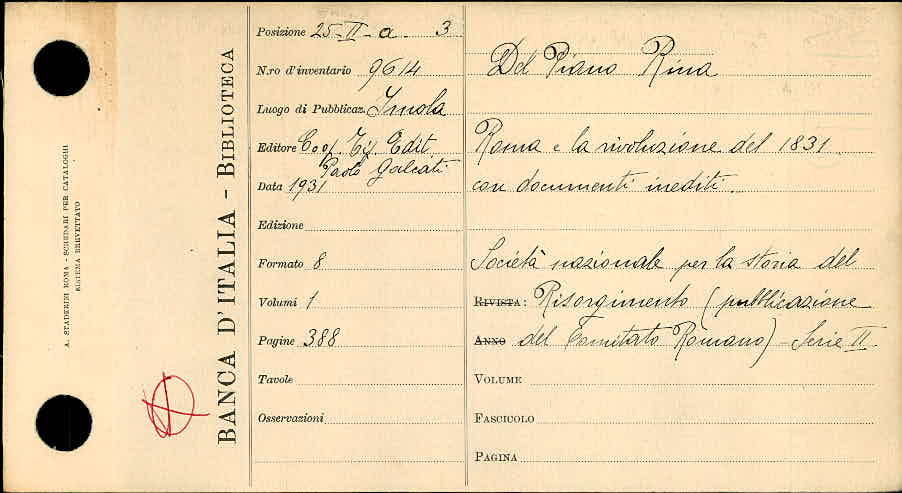 A. STADERINI ROMA - SCHEDARI PER CATALOGHI
SISTEMA BREVETTATO
BANCA D'ITALIA - BIBLIOTECA
Posizione 25-II-a. 3
N.ro d'inventario 9614
Luogo di Pubblicaz. Imola
Editore Coop. Tip. Edit.
Paolo Galeati
Data 1931
Edizione
Formato 8
Volumi 1
Pagine 388
Tavole
Osservazioni
Del Piano Rina
Roma e la rivoluzione del 1831.
con documenti inediti.
Società nazionale per la storia del
RIVISTA: Risorgimento (pubblicazione
ANNO del Comitato Romano) - Serie II.
VOLUME
FASCICOLO
PAGINA